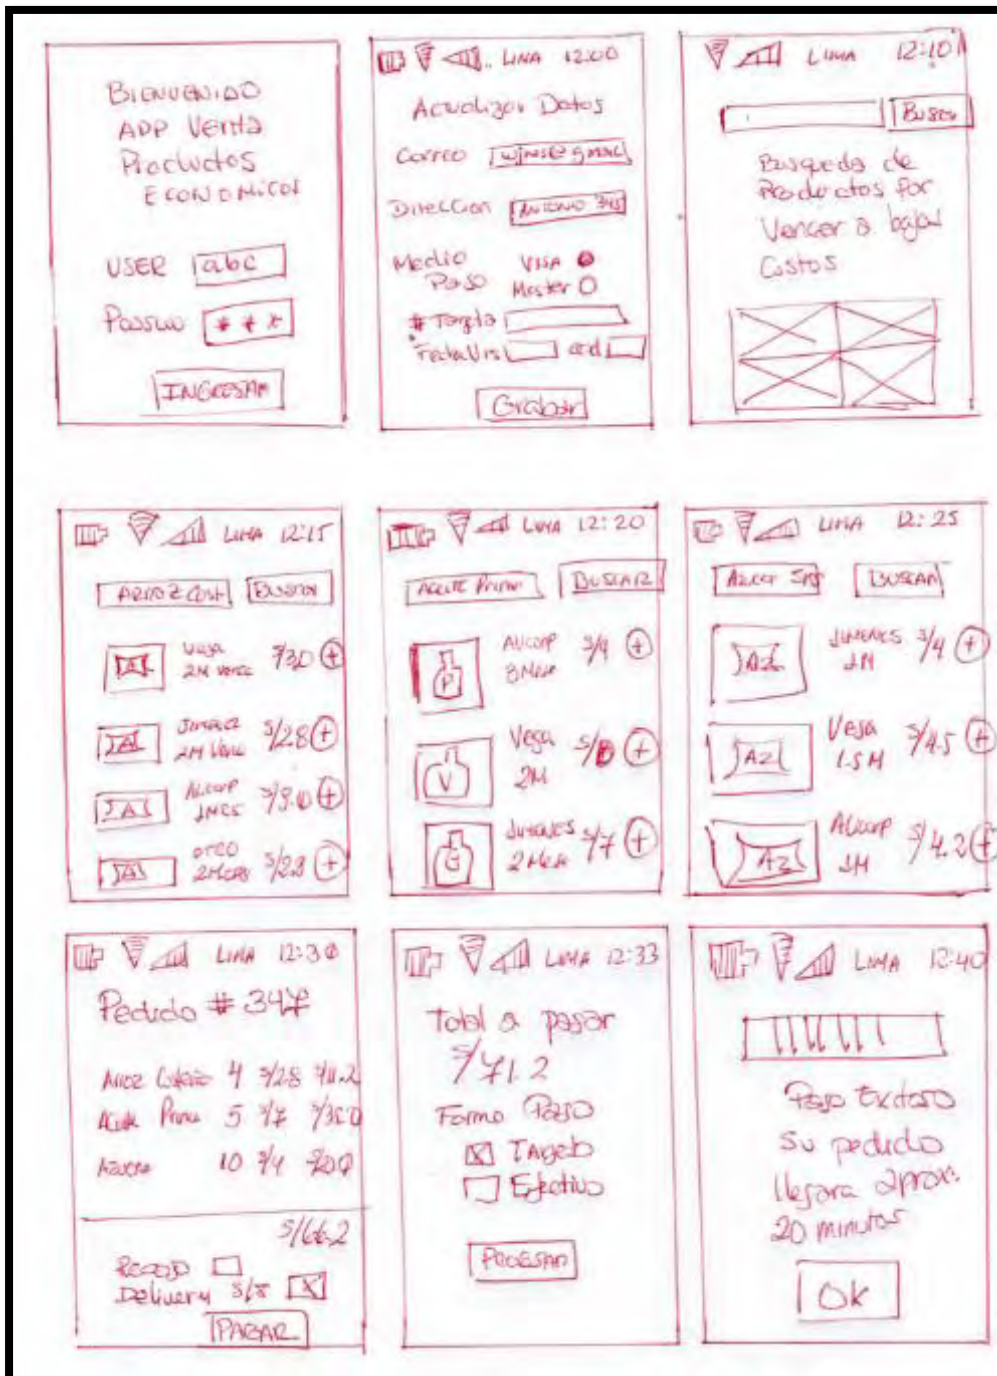 BIENVENIDO
APP Venta
Productos
ECONOMICOS
USER abc
Passwo * * *
INGRESAR
LIMA 12:00
Actualizar Datos
Correo
Direccion ANTONIO 345
Medio VISA
Pago Master
# Targeta
Fecha
Grabar
LIMA 12:10
Busca
Busqueda de
Productos por
Vencer a bajos
Costos
LIMA 12:15
ARROZ Cost Buscar
Vega
2M Vence
Jimenez S/2.8 +
2M Venc
ALICORP
2MES
2Meses S/2.8 +
LIMA 12:20
Aceite Primor BUSCAR
ALICORP S/9 +
3Mese
P
Vega
2M
V
JIMENES S/7 +
2Mese
LIMA 12:25
Azucar BUSCAR
JIMENES S/4 +
2M
AZ
Vega S/4.5 +
1.5M
AZ
ALICORP S/4.2 +
2M
AZ
LIMA 12:30
Pedido # 347
Arroz Costeño 4 S/2.8 S/11.2
Aceite Primor 5 S/7
Azucar 10 S/4
S/66.2
Recojo
Delivery S/5 X
PAGAR
LIMA 12:33
Total a pagar
S/71.2
Forma Pago
X Tageta
Efectivo
PROCESAR
LIMA 12:40
Pago Exitoso
Su pedido
llegara aprox:
20 minutos
OK